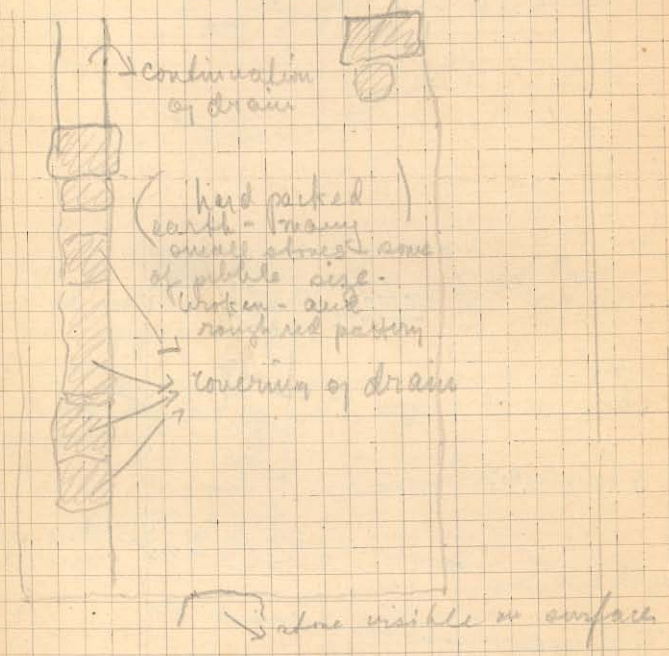 continuation
of drain
( hard packed )
earth - many
small stones - some
of pebble size -
broken - and
rough red pottery
covering of drain
stone visible on surface